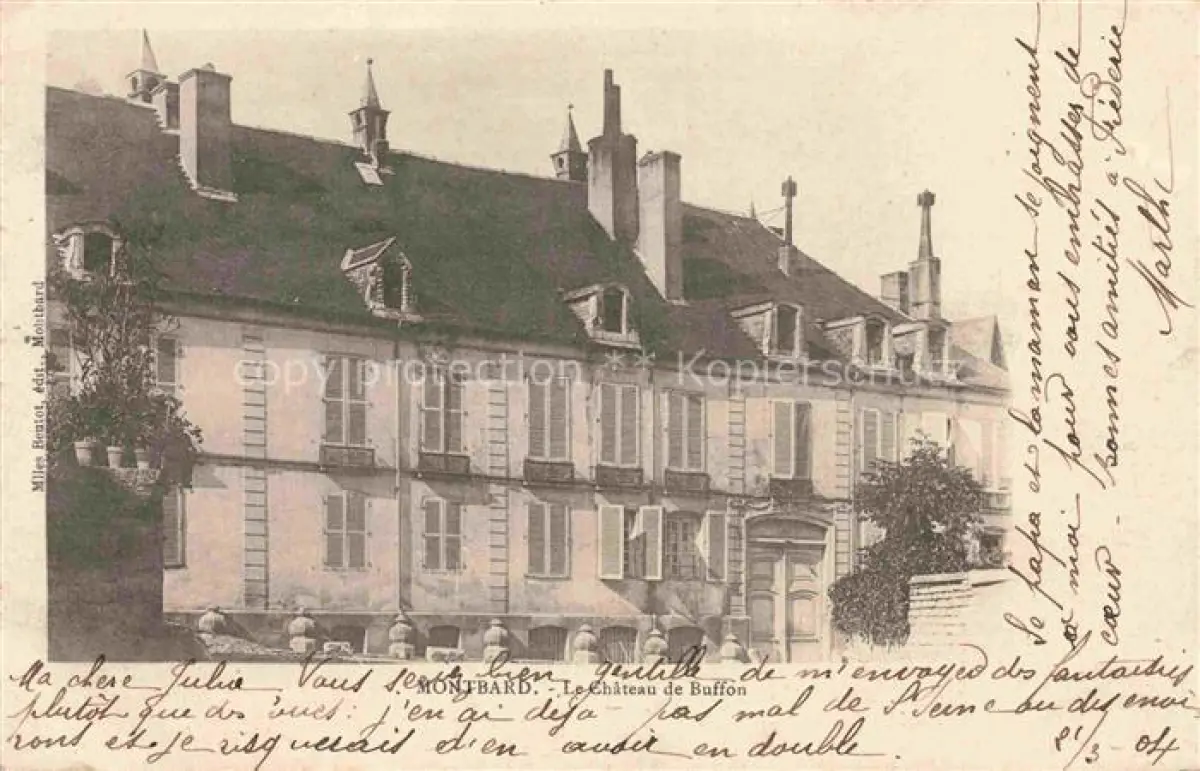 Milles Boutot, édit., Montbard
copy protection * Kopierschutz *
MONTBARD. - Le Château de Buffon
Ma chère Julie Vous serez bien gentille de m'envoyer des fantaisies
plutôt que des vues: j'en ai déjà pas mal de St Seine ou des envi
rons et je risquerais d'en avoir en double. 8/3 - 04
Le papa et la maman se joignent
à moi pour vous embrasser de
cœur - bonnes amitiés à Frédéric
Marthe